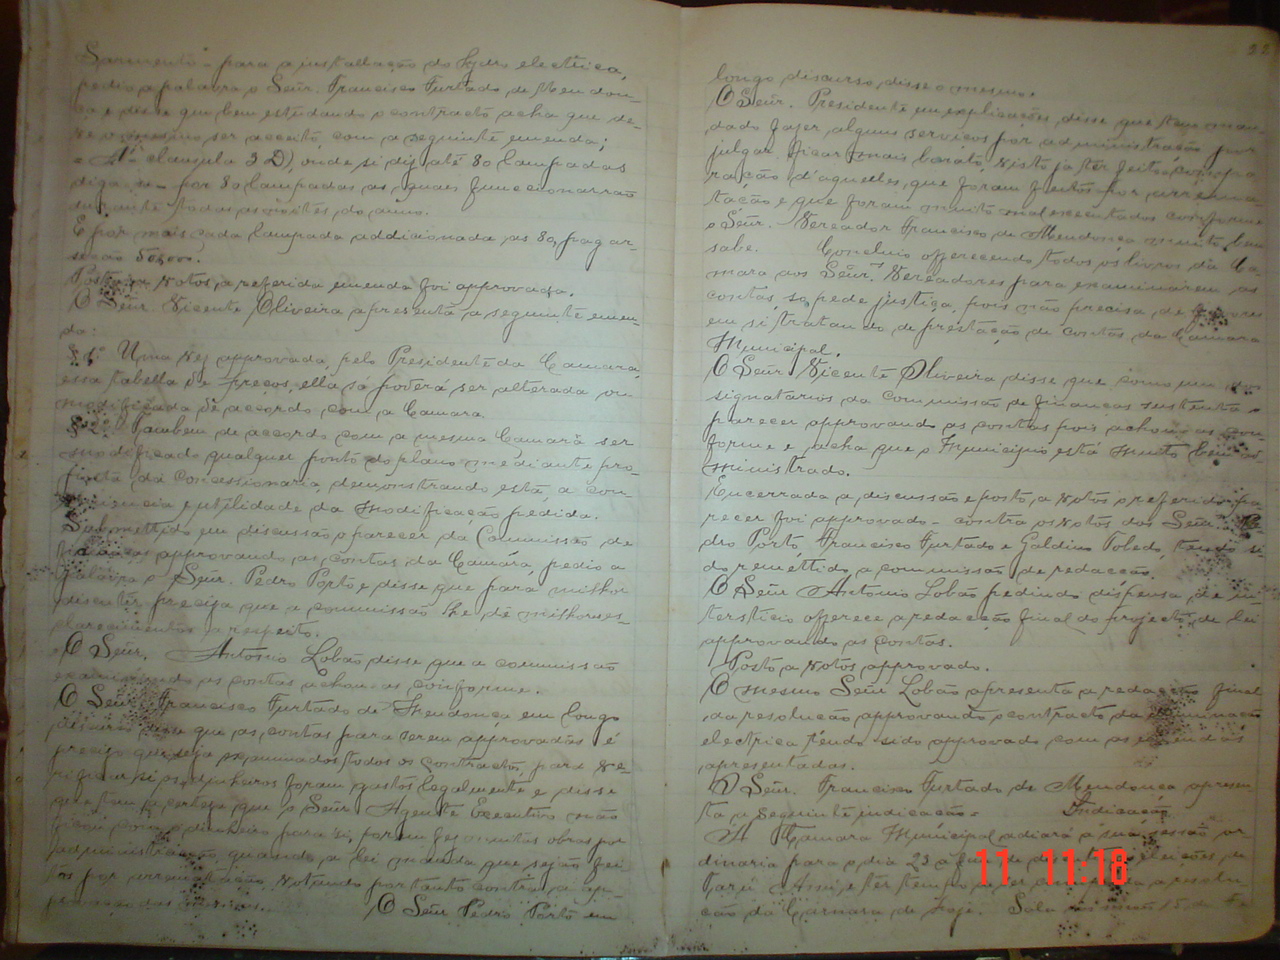 Sarmento - para a installação da hydro electrica,
pedio a palavra o Señr. Francisco Furtado de Mendon-
ça e disse que bem estudando o contracto acha que de-
ve o mesmo ser acceito, com a seguinte emenda;
= A clausula 3 D), onde si diz até 80 lampadas
diga-se - por 80 lampadas as quaes funccionarrão
durante todas as noites do anno.
E por mais cada lampada addicionada as 80, pagar-
se-ão
Posta a votos a referida emenda foi approvada.
O Señr. Vicente Oliveira apresenta a seguinte emen-
da:
§ 1º Uma vez approvada, pelo Presidente da Camara,
essa tabella de preços, ella só poderá ser alterada ou
modificada de accordo com a Camara.
§ 2º Tambem de accordo com a mesma Camara ser
modificado qualquer ponto do plano mediante pro-
posta da concessionaria, demonstrando esta, a con-
veniencia e utilidade da modificação pedida.
Submettido em discussão o parecer da Commissão de
finanças approvando as contas da Camara, pedio a
palavra o Señr. Pedro Porto e disse que para milhor
discutir precisa que a commissão lhe dê milhores es-
clarecimentos a respeito.
O Señr. Antonio Lobão disse que a commissão
examinando as contas achou-as conforme.
O Señr. Francisco Furtado de Mendonça em longo
discurso disse que as contas para serem approvadas é
preciso que seja examinados todos os contractos, para ve-
rificar si os dinheiros foram gastos legalmente e disse
que tem a certeza que o Señr Agente Executivo não
ficou com o dinheiro para si, porem fez muitas obras por
administração, quando a lei manda que sejão fei-
tas por arrematação, votando portanto contra a ap-
provação das mesmas.
O Señr Pedro Porto em
22
longo discurso, disse o mesmo.
O Señr. Presidente em explicações disse que tem man-
dado fazer alguns serviços por administração por
julgar ficar mais barato, visto ja ter feito compa-
ração d'aquelles, que foram feitos por arrema-
tação e que foram muito mal executados conforme
o Señr. Vereador Francisco de Mendonça muito bem
sabe. Concluio offerecendo todos os livros da Ca-
mara aos Señrs. Vereadores para examinarem as
contas, so pede justiça, pois não precisa de
em si tratando de prestação de contas da Camara
Municipal.
O Señr Vicente Oliveira disse que como um dos
signatarios da commissão de finanças sustenta o
parecer approvando as contas pois achou-as con-
forme e acha que o Municipio está muito bem ad-
ministrado.
Encerrada a discussão e posto a votos o referido pa-
recer foi approvado - contra os votos dos Señrs. Pe-
dro Porto, Francisco Furtado e Galdino Toledo, tendo si-
do remettido a commissão de redacção.
O Señr Antonio Lobão pedindo dispensa de in-
tersticio offerece a redacção final do projecto de lei
approvando as contas.
Posto a votos approvado.
O mesmo Señr Lobão apresenta a redacção final
da resolução approvando o contracto da illuminação
electrica tendo sido approvado com as emendas
apresentadas.
O Señr. Francisco Furtado de Mendonça apresen-
ta a seguinte indicação = Indicação
A Camara Municipal adiará a sua sessão or-
dinaria para o dia 23 a fim de eleições de
e ter tempo a resolu-
ção da Camara de hoje. Sala das sessões 15 de
11 11:18